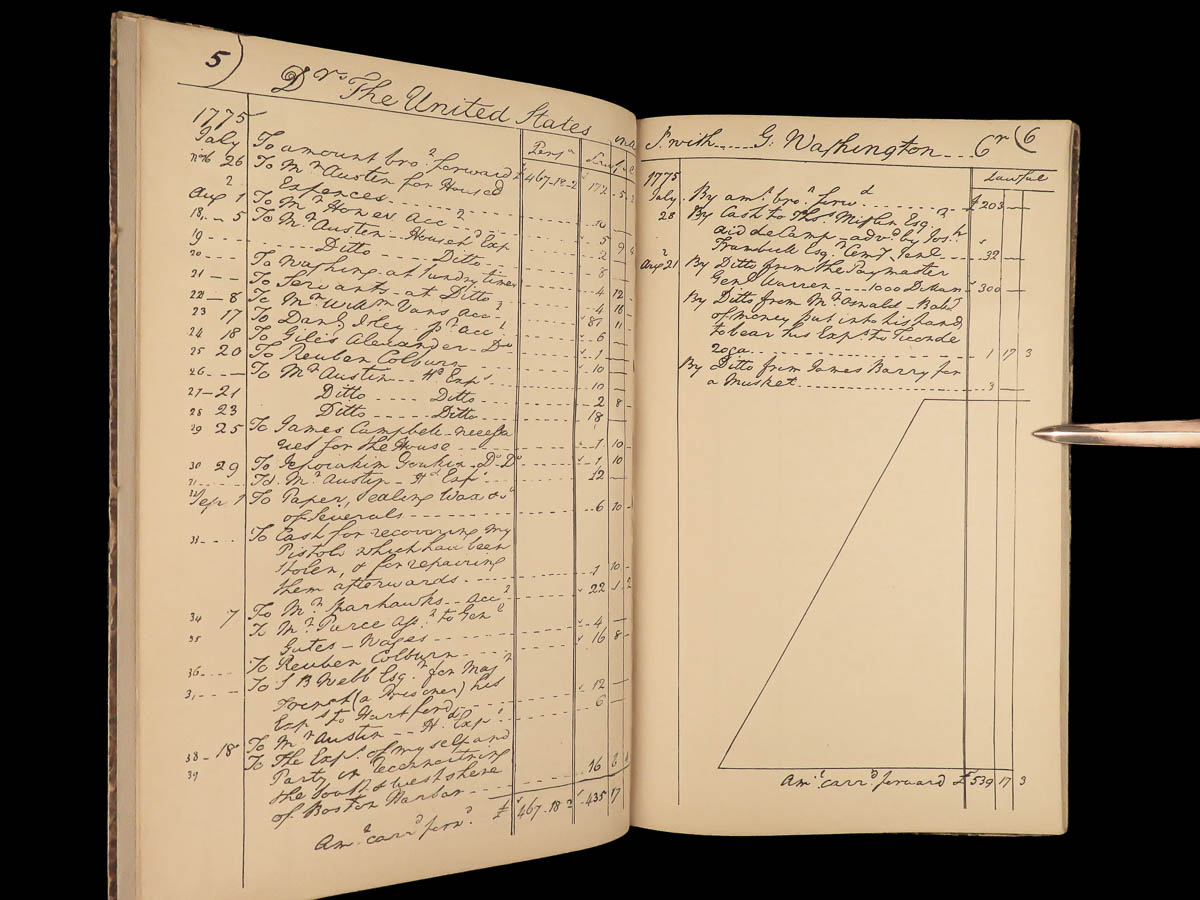 5
Drs. The United States
1775
July To amount bro.t forward £467.18.2 172 5
26 To Mr Austen for Househd
Expences 10
Aug 1 To Mr Hones Acc 5 9
5 To Mr Austin Househd Exp 2
19 Ditto Ditto 8
20 To Washing at sundry times 4 12
21 To Servants at Ditto 4 16
22 8 To Mr Willm Vans Acc 81 11
23 17 To Danl Isley pr acc 6
24 18 To Giles Alexander Do 1
25 20 To Reuben Colburn 10
26 To Mr Austin Hd Exps 10
27 21 Ditto Ditto 2 8
28 23 Ditto Ditto 18
29 25 To James Campbell necessa
ries for the House 1 10
30 29 To Do Do 1 10
31 To Mr Austin Hd Exp 12
32 Sep 1 To Paper, Sealing Wax &c
of Severals 6 10
33 To Cash for recovering my
Pistols which had been
Stolen, & for repairing
them afterwards 1 10
34 7 To Mr Sparhawks acc 22 1 2
35 To Mr Pierce to Genl
Gates Wages 4
36 To Reuben Colburn 16 8
To S B Webb Esqr for Majr
French (a Prisoner) his
Exps to Hartford 12
38 18 To Mr Austin H. Exps 6
39 To The Exps of myself and
Party in reconnoitring
the South & West shore
of Boston Harbor 16
Amt carrd forwd £467.18.2 435 17
Acct with G. Washington Cr 6
Lawful
1775
July By amt brot forwd £203
28 By Cash to Thos Mifflin Esqr
aid de Camp advd by Josh
Trumbull Esqr Comy Genl 32
Aug 21 By Ditto from the Paymaster
Genl Warren 1000 Dollars 300
By Ditto from Mr Ball
of money put into his hand
to bear his Exps to Ticonde
roga 1 17 3
By Ditto from James Barry for
a Musket 3
Amt carrd forward £539 17 3